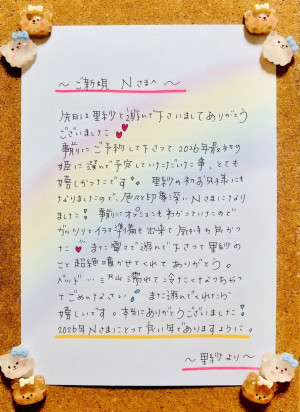 ～ご新規 Nさまへ～
先日は里紗と遊んで下さいましてありがとう
ございました
事前にご予約して下さって2026年最初の
姫に選んで予定していただいた事、とても
嬉しかったです。里紗の初お兄様にも
なりましたので、色々と印象深いNさまになり
ました！事前にオプションもわかっていたので
ガッツリとイラマ準備も出来て気持ち良かっ
た また電マで遊んで下さって里紗の
こと超絶噴かせてくれてありがとう。
ベッド…沢山濡れて冷たくなっちゃっ
てごめんなさい また遊んでくれたら
嬉しいです。本当にありがとうございました！
2026年Nさまにとって良い年でありますように。
～里紗より～